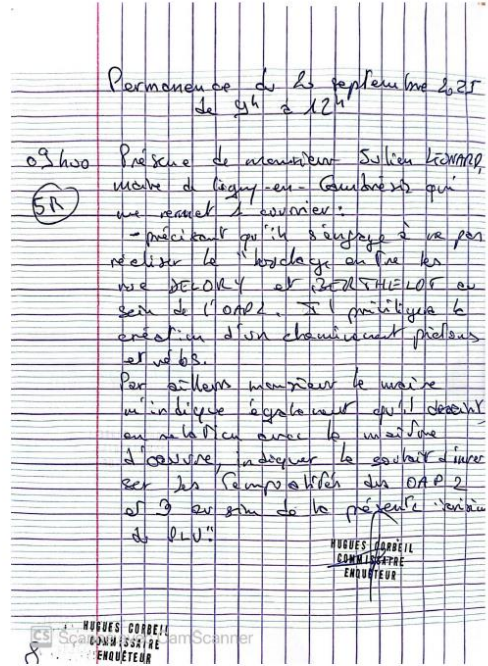 Permanence du 20 septembre 2025
de 9h à 12h
09h00 Présence de monsieur Julien LEONARD,
5R
maire de Ligny-en-Cambrésis qui
me remet 1 courrier :
- précisant qu'il s'engage à ne pas
réaliser le bouclage entre les
rue DELORY et BERTHELOT au
sein de l'OAP2. Il privilégiera la
création d'un cheminement piétons
et vélos.
Par ailleurs monsieur le maire
m'indique également qu'il devait
en relation avec le maître
d'oeuvre, indiquer le souhait d'inver
ser les temporalités des OAP 2
et 3 au sein de la présente révision
du PLU."
HUGUES CORBEIL
COMMISSAIRE
ENQUÊTEUR
HUGUES CORBEIL
COMMISSAIRE
ENQUÊTEUR
CS CamScanner
8